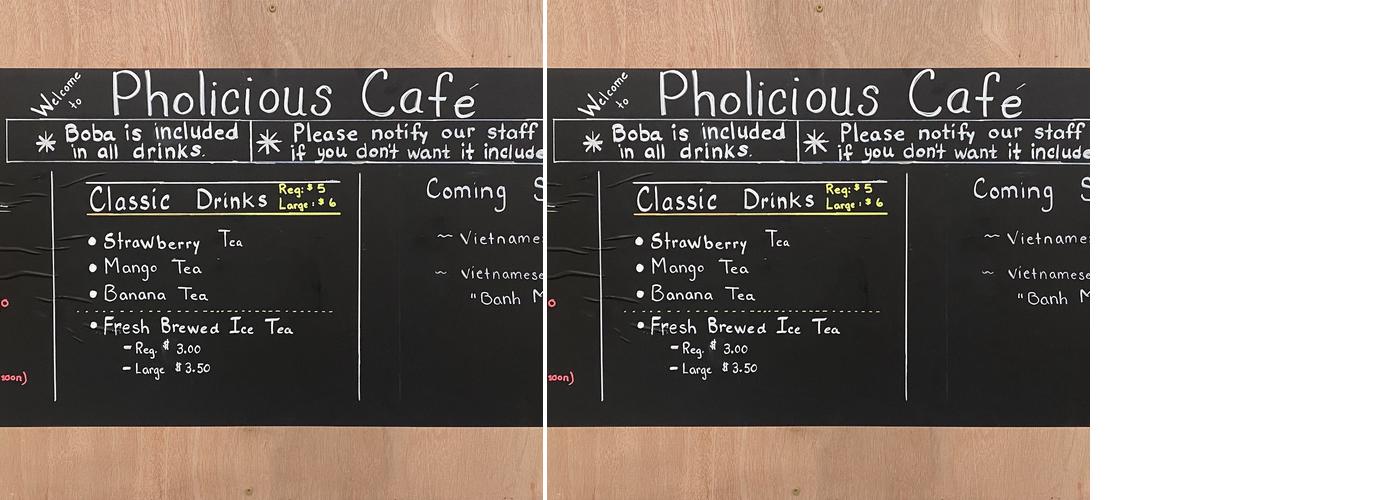 Welcome to
Pholicious Café
* Boba is included
in all drinks.
* Please notify our staff
if you don't want it include
Classic Drinks
Reg: $5
Large: $6
• Strawberry Tea
• Mango Tea
• Banana Tea
• Fresh Brewed Ice Tea
- Reg. $3.00
- Large $3.50
Coming S
~ Vietname
~ Vietnamese
"Banh M
o
soon)
Welcome to
Pholicious Café
* Boba is included
in all drinks.
* Please notify our staff
if you don't want it include
Classic Drinks
Reg: $5
Large: $6
• Strawberry Tea
• Mango Tea
• Banana Tea
• Fresh Brewed Ice Tea
- Reg. $3.00
- Large $3.50
Coming S
~ Vietname
~ Vietnamese
"Banh M
o
soon)